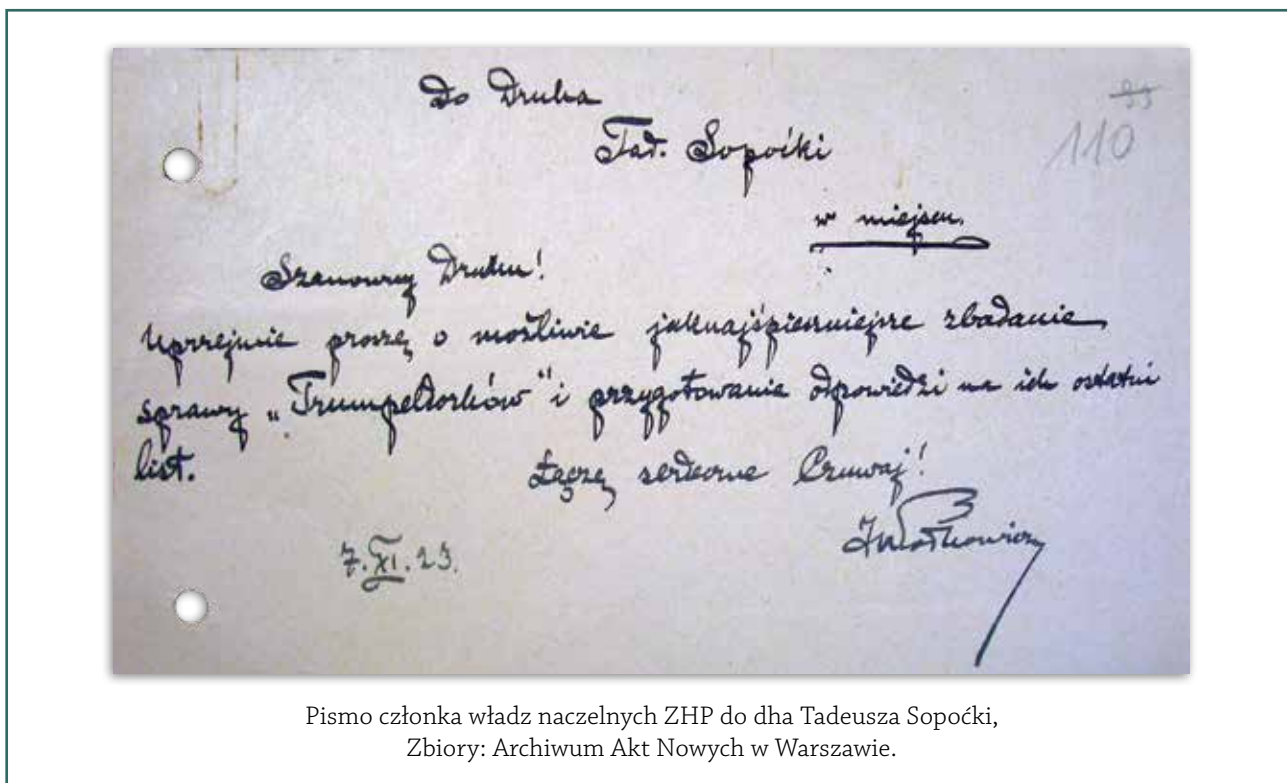 Do Druha
Tad. Sopoćki
95
110
w miejscu.
Szanowny Druhu!
Uprzejmie proszę o możliwie jaknajśpieszniejsze zbadanie
sprawy „Trumpeldorków” i przygotowanie odpowiedzi na ich ostatni
list.
Łączę serdeczne Czuwaj!
7.XI.23.
Pismo członka władz naczelnych ZHP do dha Tadeusza Sopoćki,
Zbiory: Archiwum Akt Nowych w Warszawie.